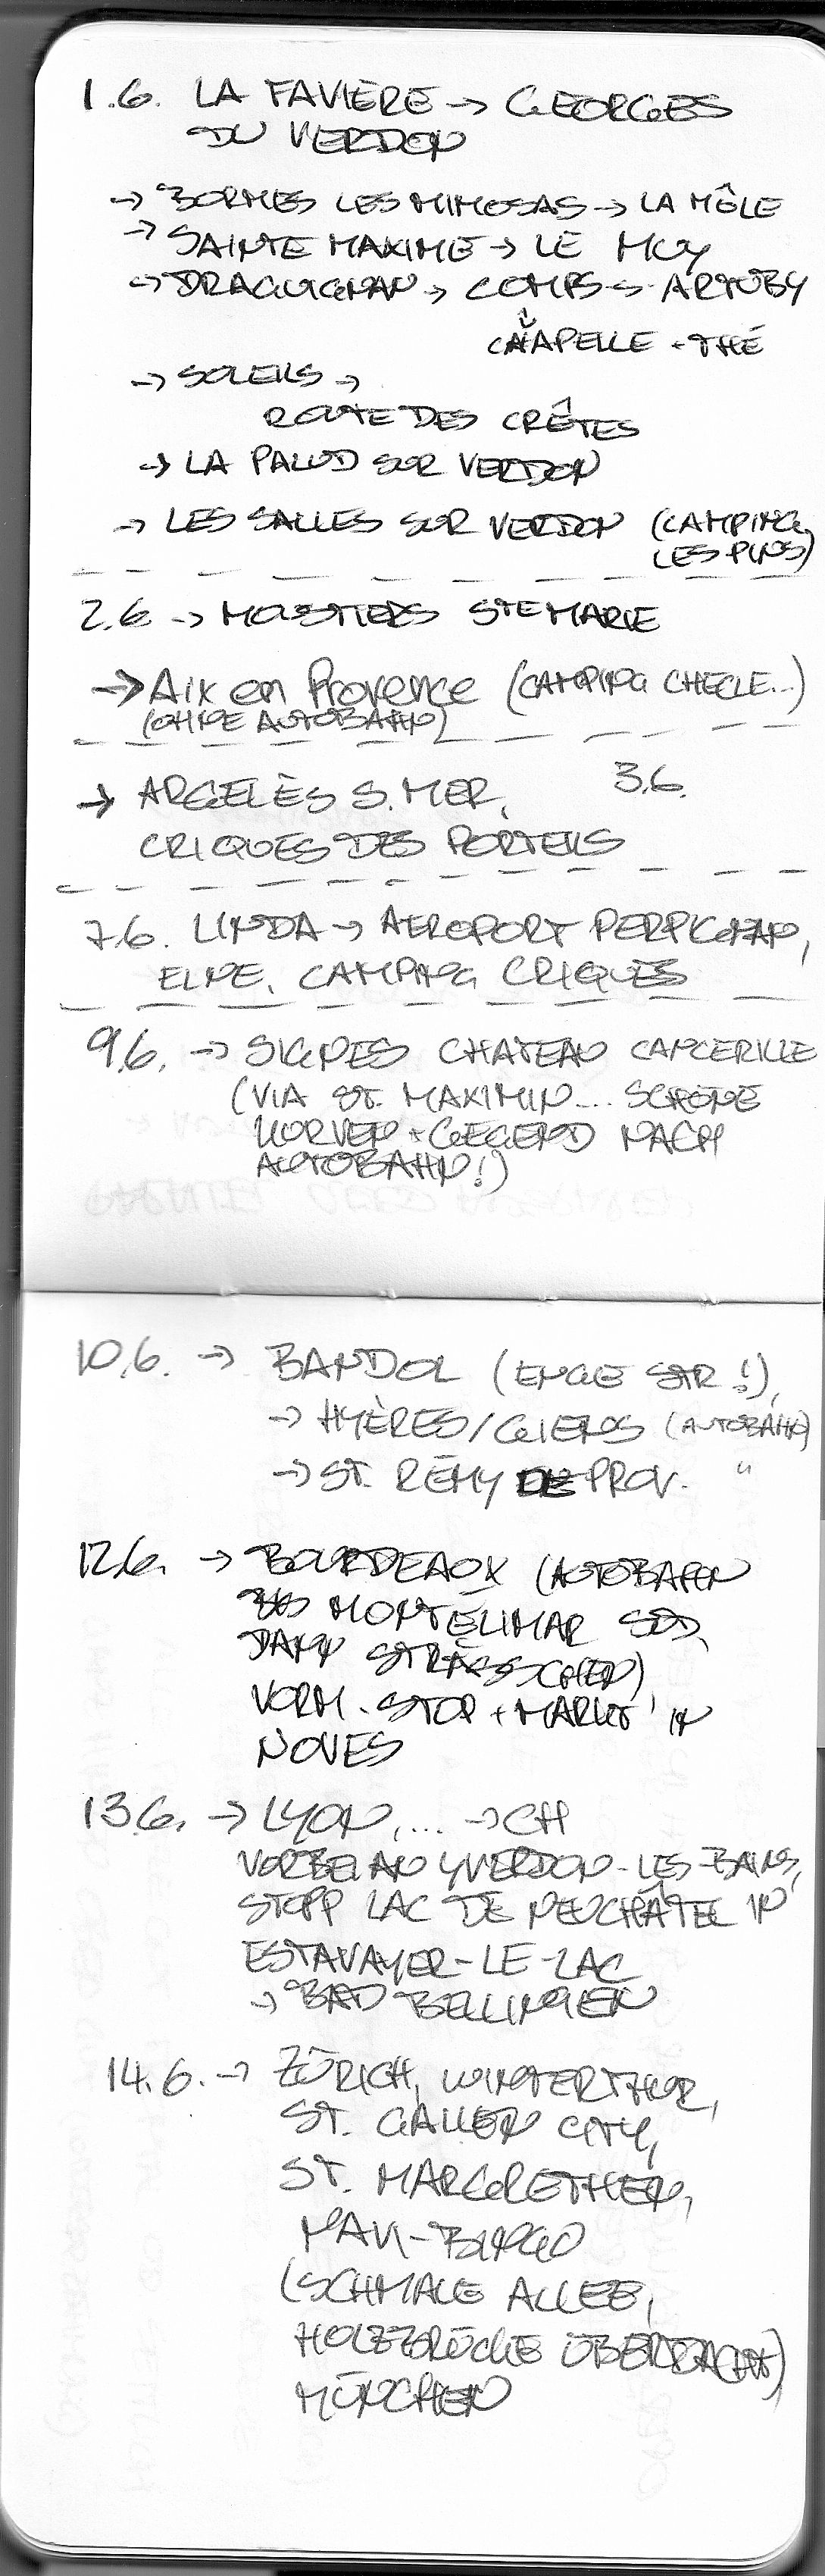 1.6. LA FAVIÈRE → GEORGES
DU VERDON
→ BORMES LES MIMOSAS → LA MÔLE
→ SAINTE MAXIME → LE MUY
→ DRAGUIGNAN → COMPS S. ARTUBY
CHAPELLE + THÉ
→ SOLEILS →
ROUTE DES CRÊTES
→ LA PALUD SUR VERDON
→ LES SALLES SUR VERDON (CAMPING
LES PINS)
2.6 → MOUSTIERS STE MARIE
→ Aix en Provence (CAMPING CHECLE...)
(OHNE AUTOBAHN)
→ ARGELÈS S. MER, 3.6.
CRIQUES DES PORTEILS
7.6. LINDA → AEROPORT PERPIGNAN,
ELNE, CAMPING CRIQUES
9.6. → SIGNES CHATEAU CANCERILLE
(VIA ST. MAXIMIN... SCHÖNE
KURVEN + GEGEND NACH
AUTOBAHN!)
10.6. → BANDOL (ENGE STR!),
→ HYÈRES/GIENS (AUTOBAHN)
→ ST. RÉMY DE PROV. "
12.6. → BOURDEAUX (AUTOBAHN
BIS MONTÉLIMAR SÜD,
DANN STRÄSSCHEN)
VORM. STOP + MARKT IN
NOVES
13.6. → LYON, ... → CH
VORBEI AN YVERDON-LES-BAINS,
STOPP LAC DE NEUCHÂTEL IN
ESTAVAYER-LE-LAC
→ BAD BELLINGEN
14.6. → ZÜRICH, WINTERTHUR,
ST. GALLEN CITY,
ST. MARGRETHEN,
(SCHMALE ALLEE,
HOLZBRÜCKE ÜBERDACHT)
MÜNCHEN